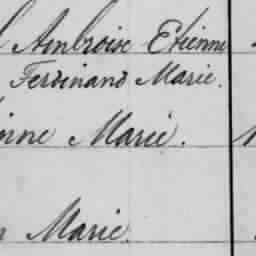 Ambroise Etienne
Ferdinand Marie.
Marie.
Marie.